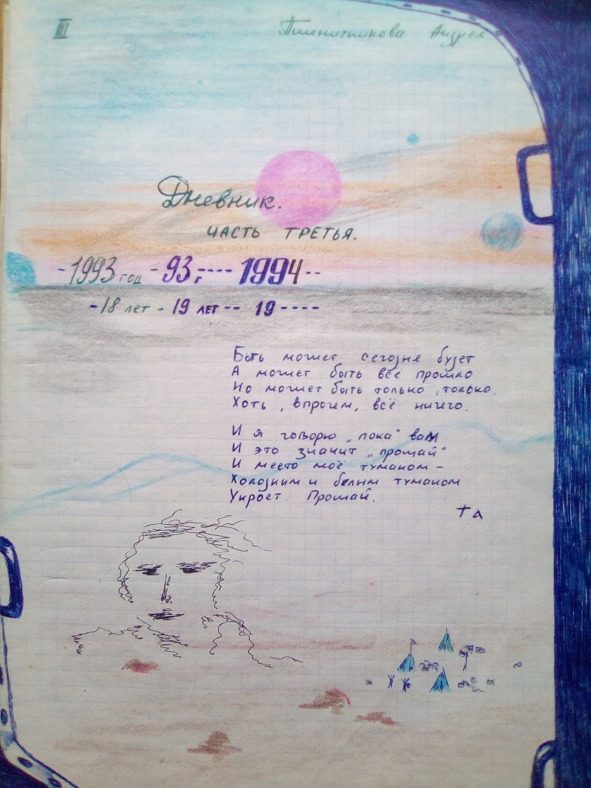 III
Пшеничникова Андрея
Дневник.
ЧАСТЬ ТРЕТЬЯ.
- 1993 год - 93г. - - - - 1994 - -
- 18 лет - 19 лет - - 19 - - - -
Быть может сегодня будет
А может быть всё прошло
Но может быть только, только.
Хоть, впрочем, всё ничего.
И я говорю „пока" вам
И это значит „прощай"
И место моё туманом -
Холодным и белым туманом
Укроет. Прощай.